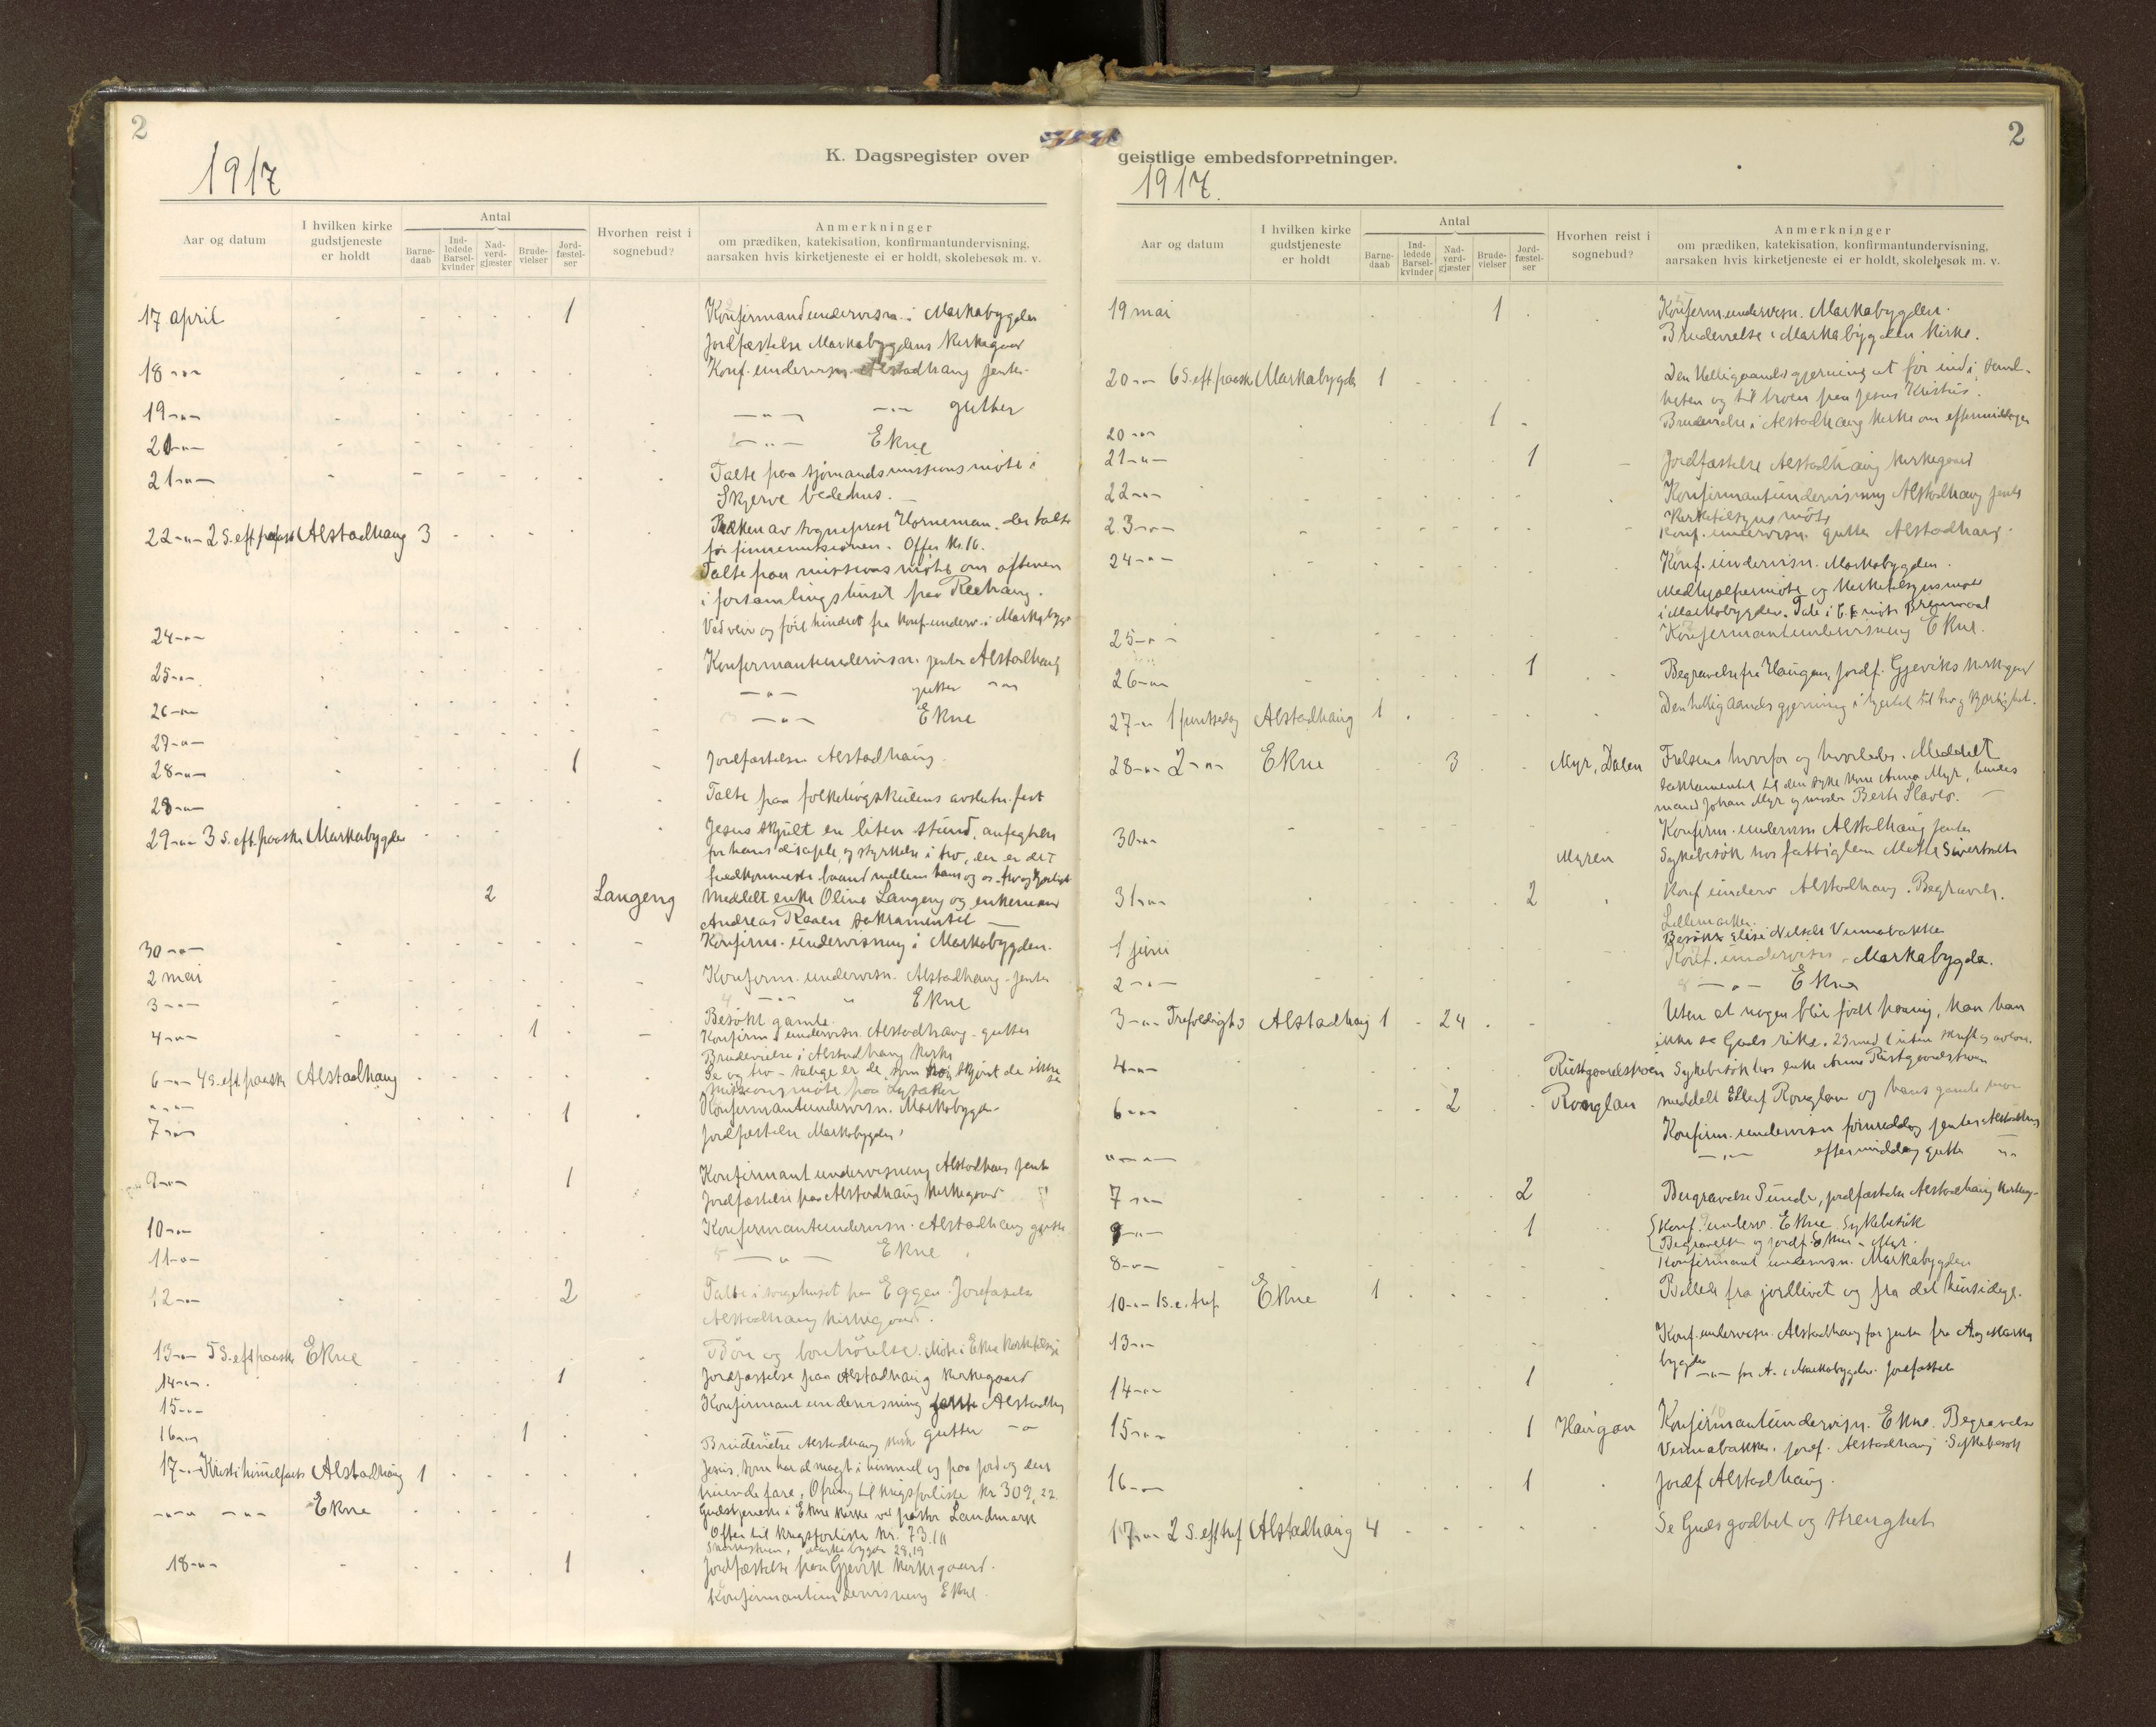 2
1917
K. Dagsregister over
Aar og datum
I hvilken kirke gudstjeneste er holdt
Antal
Barne-daab
Ind-ledede Barsel-kvinder
Nad-verd-gjæster
Brude-vielser
Jord-fæstel-ser
Hvorhen reist i sognebud?
Anmerkninger
om prædiken, katekisation, konfirmantundervisning,
aarsaken hvis kirketjeneste ei er holdt, skolebesøk m. v.
17 april 1 Konfirmandundervisn. i Markabygden
Jordfæstelse Markabygdens Kirkegaard
18 -"- Konf. undervisn. Alstadhaug jenter
19 -"- -"- -"- gutter
20 -"- -"- Ekne
21 -"- Talte paa sjømandsmissionsmøte i
Skjerve bedehus.
22 -"- 2 S. eft paaske Alstadhaug 3 Præken av sogneprest Horneman. der talte
for finnemissionen. Offer kr. 16.
Talte paa missionsmøte om aftenen
i forsamlingshuset paa Reehaug.
24 -"- Ved veir og føre hindret fra konf. underv. i Markabygd
25 -"- Konfirmantundervisn. jenter Alstadhaug
26 -"- -"- gutter -"-
27 -"- -"- Ekne
28 -"- 1 Jordfæstelse Alstadhaug.
28 -"- Talte paa folkehøgskulens avslutn. fest
29 -"- 3 S. eft. paaske Markabygden Jesus skjult en liten stund, anfegtelse
for hans disciple, og styrkelse i tro, der er det
baand mellem ham og os. tro og kjærlighet
2 Langeng Meddelt enke Oline Langeng og enkemand
Andreas Reaen sakramentet
30 -"- Konfirm. undervisning i Markabygden.
2 mai Konfirm. undervisn. Alstadhaug - jenter
3 -"- 4 -"- " Ekne
Besøkt gamle
4 -"- 1 Konfirm. undervisn. Alstadhaug - gutter
Brudevielse i Alstadhaug kirke
6 -"- 4 S. eft paaske Alstadhaug Se og tro - salige er de som tror skjønt de ikke ser
-"- Missionsmøte paa Lysaker
7 -"- 1 Konfirmantundervisn. Markabygden
Jordfæstelse Markabygden
9 -"- 1 Konfirmantundervisning Alstadhaug jenter
Jordfæstelse paa Alstadhaug kirkegaard
10 -"- Konfirmantundervisn. Alstadhaug gutter
11 -"- -"- Ekne
12 -"- 2 Talte i sørgehuset paa Eggen. Jordfæstelse
Alstadhaug kirkegaard.
13 -"- 5 S. eft paaske Ekne Bøn og bønhørelse. Møte i Ekne kirketilsyn
14 -"- 1 Jordfæstelse paa Alstadhaug kirkegaard
15 -"- Konfirmantundervisning jenter Alstadhaug
16 -"- 1 Brudevielse Alstadhaug kirke gutter -"-
17 -"- Kristi himmelfarts Alstadhaug 1 Jesus, som har al magt i himmel og paa jord og den
truende fare. Ofring til krigsforliste kr 309,22.
-"- -"- Ekne Gudstjeneste i Ekne kirke ved pastor Landmark
Offer til krigsforliste kr. 73.10
Markabygden 28,19
18 -"- 1 Jordfæstelse paa Gjevik kirkegaard.
Konfirmantundervisning Ekne.
2
geistlige embedsforretninger.
1917.
Aar og datum
I hvilken kirke gudstjeneste er holdt
Antal
Barne-daab
Ind-ledede Barsel-kvinder
Nad-verd-gjæster
Brude-vielser
Jord-fæstel-ser
Hvorhen reist i sognebud?
Anmerkninger
om prædiken, katekisation, konfirmantundervisning,
aarsaken hvis kirketjeneste ei er holdt, skolebesøk m. v.
19 mai 1 Konfirm.undervisn. Markabygden.
Brudevielse i Markabygden kirke.
20 -"- 6 S. eft. paaske Markabygda 1 Den Helligaands gjerning at føre ind i sand-
heten og til troen paa Jesus Kristus.
20 -"- 1 Brudevielse i Alstadhaug kirke om eftermiddagen
21 -"- 1 Jordfæstelse Alstadhaug kirkegaard
22 -"- Konfirmantundervisning Alstadhaug jenter
Kirketilsynsmøte
23 -"- Konf. undervisn. gutter Alstadhaug.
24 -"- Konf. undervisn. Markabygden.
Medhjælpermøte og kirketilsynsmøte
i Markabygden. Tale i
25 -"- Konfirmantundervisning Ekne.
26 -"- 1 Begravelse fra Haugan, jordf. Gjeviks kirkegaard
27 -"- 1 pinsedag Alstadhaug 1 Den hellig aands gjerning i hjertet til tro og kjærlighet.
28 -"- 2 -"- Ekne 3 Myr, Dalen Frelsens hvorfor og hvorledes. Meddelt
sakramentet til den syke kone Anna Myr, hendes
mand Johan Myr og moster Berte
30 -"- Konfirm. undervisn Alstadhaug jenter
Myren Sykebesøk hos fattiglem Mette Sivertsdtr
31 -"- 2 Konf underv Alstadhaug. Begravelse
Lillemarken.
Besøkt Elise Nelsdtr Vinnabakken
1 juni Konf. undervisn - Markabygda.
2 -"- 8 -"- Ekne
3 -"- Trefoldighets Alstadhaug 1 24 Uten at nogen blir født paany, kan han
ikke se Guds rike.
4 -"- Ristgaardshøen Sykebesøk hos enke Anne Ristgaardshøen
6 -"- 2 Ronglan meddelt Ellef Ronglan og hans gamle mor
Konfirm. undervisn formiddag jenter Alstadhaug
-"- -"- eftermiddag gutter -"-
7 -"- 2 Begravelse Sunde, jordfæstelse Alstadhaug kirkeg.
9 -"- 1 Konf. underv. Ekne. Sykebesøk
Begravelse og jordf. Ekne - Myr.
8 -"- Konfirmant undervisn. Markabygden
10 -"- 1 S. e. tref Ekne 1 Billede fra jordlivet og fra det hinsidige.
13 -"- Konf. undervisn. Alstadhaug for jenter fra A og Marka
bygden
14 -"- 1 -"- for A. i Markabygden. Jordfæstelse
15 -"- 1 Haugan Konfirmantundervisn. Ekne. Begravelse
Vinnabakken. jordf. Alstadhaug Sykebesøk
16 -"- 1 Jordf Alstadhaug.
17 -"- 2 S. eft tref Alstadhaug 4 Se Guds godhet og strenghet